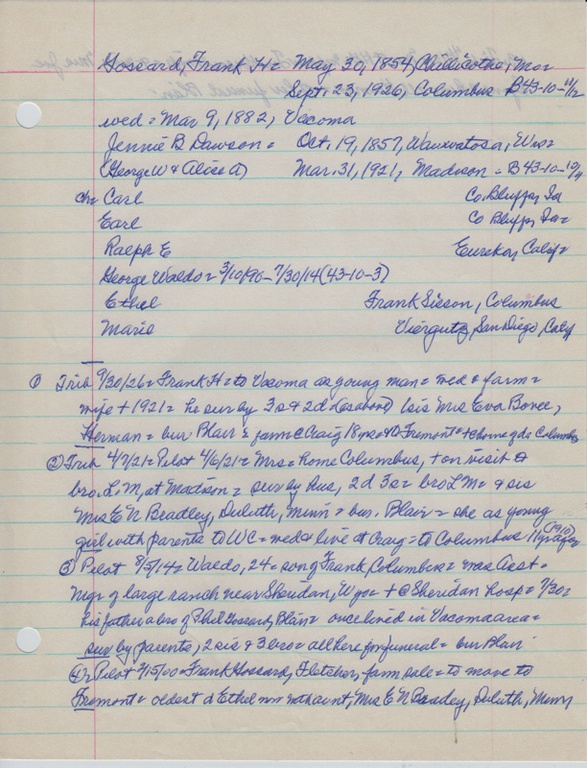 Gossard, Frank H = May 30, 1854, Chillicothe, Mo=
Sept. 23, 1926, Columbus B43-10-11/2
wed = Mar 9, 1882, Vacoma
Jennie B Dawson = Oct. 19, 1857, Wauwatosa, Wis=
(George W & Alice A) Mar. 31, 1921, Madison = B43-10-10/4
ch= Carl Co. Bluffs, Ia
Earl Co Bluffs, Ia=
Ralph E Eureka, Calif=
George Waldo = 3/10/90-7/30/14 (43-10-3)
Ethel Frank Sisson, Columbus
Marie Viergutz, San Diego, Calif
① Trib 9/30/26 = Frank H = to Vacoma as young man = wed & farm =
wife + 1921 = he sur by 3s & 2d (as above) 1 sis Mrs Eva
Herman = bur Blair = farm @ Craig 18 yrs & to Fremont & + home of d= Columbus
② Trib 4/7/21 = Pilot 4/6/21 = Mrs = home Columbus, + on visit @
bro L. M, at Madison = sur by hus, 2d 3s = bro L M = & sis
Mrs E N Bradley, Duluth, Minn = bur. Blair = she as young
girl with parents to WC = wed & live at Craig = to Columbus 11 yrs ago (1910)
③ Pilot 8/5/14 = Waldo, 24 = son of Frank, Columbus = was Asst =
Mgr of large ranch near Sheridan, Wyo= + @ Sheridan hosp = 7/30 =
his father a bro of Phil Gossard, Blair = once lived in Vacoma area =
sur by parents, 2 sis & 3 bro = all here for funeral = bur Blair
④ Pilot 2/15/00 = Frank Gossard, Fletcher, farm sale = to move to
Fremont = oldest d Ethel with aunt, Mrs E N Bradley, Duluth, Minn